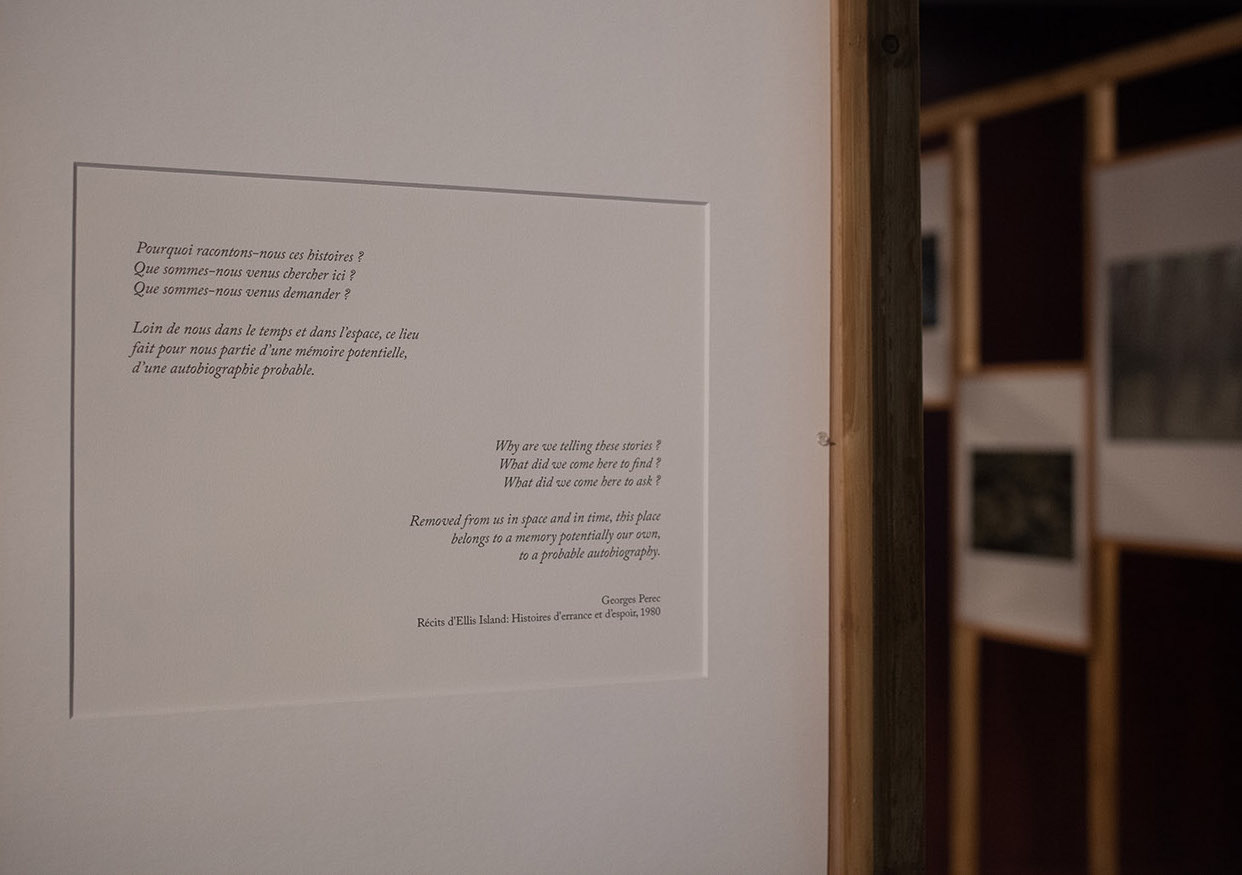 Pourquoi racontons-nous ces histoires ?
Que sommes-nous venus chercher ici ?
Que sommes-nous venus demander ?
Loin de nous dans le temps et dans l'espace, ce lieu
fait pour nous partie d'une mémoire potentielle,
d'une autobiographie probable.
Why are we telling these stories ?
What did we come here to find ?
What did we come here to ask ?
Removed from us in space and in time, this place
belongs to a memory potentially our own,
to a probable autobiography.
Georges Perec
Récits d'Ellis Island: Histoires d'errance et d'espoir, 1980